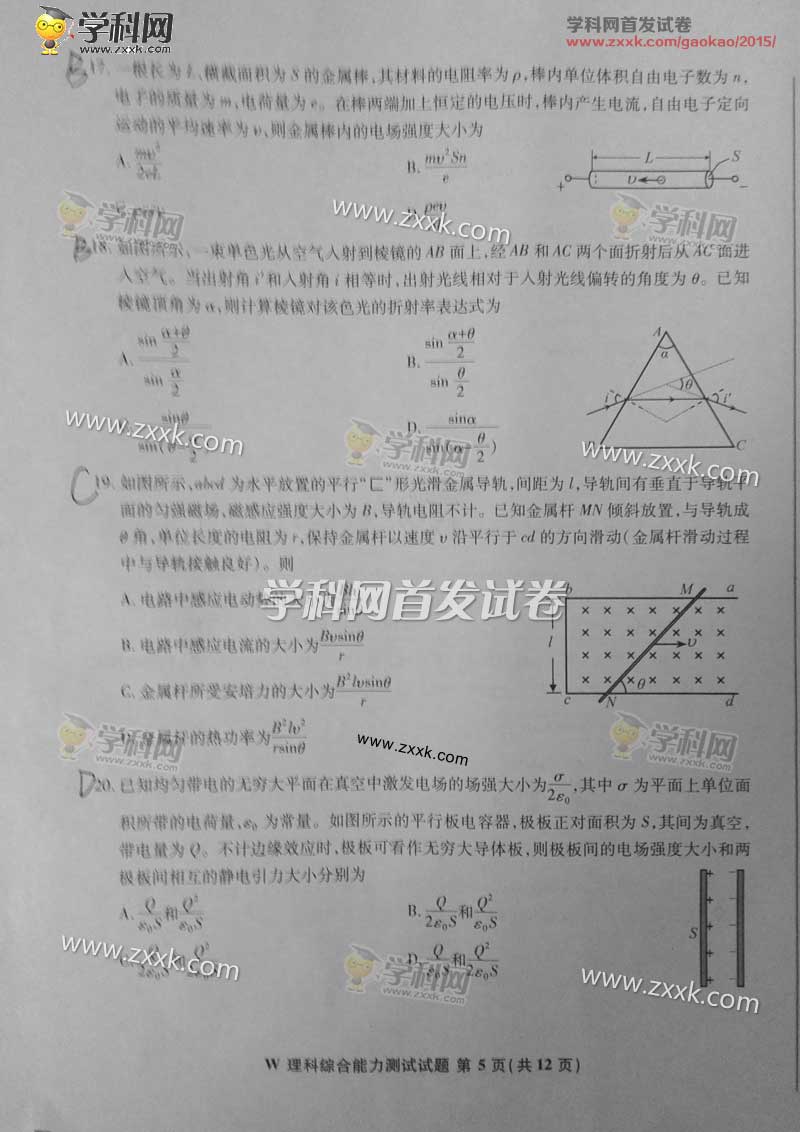 学科网
www.zxxk.com
学科网首发试卷
www.zxxk.com/gaokao/2015/
B17. 一根长为L、横截面积为S的金属棒,其材料的电阻率为ρ,棒内单位体积自由电子数为n,
电子的质量为m,电荷量为e。在棒两端加上恒定的电压时,棒内产生电流,自由电子定向
运动的平均速率为υ,则金属棒内的电场强度大小为
A. mυ²/2eL
B. mυ²Sn/e
L S
υ
+ −
学科网
www.zxxk.com
学科网
B18. 如图所示,一束单色光从空气入射到棱镜的AB面上,经AB和AC两个面折射后从AC面进
入空气。当出射角i′和入射角i相等时,出射光线相对于入射光线偏转的角度为θ。已知
棱镜顶角为α,则计算棱镜对该色光的折射率表达式为
A. sin (α+θ)/2 / sin α/2
B. sin (α+θ)/2 / sin θ/2
sinθ / sin(
D. sinα / sin(α−θ/2)
A α θ i i′ C
www.zxxk.com
学科网
www.zxxk.com
C19. 如图所示,abcd为水平放置的平行“匚”形光滑金属导轨,间距为l,导轨间有垂直于导轨平
面的匀强磁场,磁感应强度大小为B,导轨电阻不计。已知金属杆MN倾斜放置,与导轨成
θ角,单位长度的电阻为r,保持金属杆以速度υ沿平行于cd的方向滑动(金属杆滑动过程
中与导轨接触良好)。则
A. 电路中感应电动
学科网首发试卷
B. 电路中感应电流的大小为Bυsinθ/r
C. 金属杆所受安培力的大小为B²lυsinθ/r
D. 金属杆的热功率为B²lυ²/rsinθ
b M a
l υ
θ
c N d
学科网
www.zxxk.com
学科网
D20. 已知均匀带电的无穷大平面在真空中激发电场的场强大小为σ/2ε₀,其中σ为平面上单位面
积所带的电荷量,ε₀为常量。如图所示的平行板电容器,极板正对面积为S,其间为真空,
带电量为Q。不计边缘效应时,极板可看作无穷大导体板,则极板间的电场强度大小和两
极板间相互的静电引力大小分别为
A. Q/ε₀S和Q²/ε₀S
B. Q/2ε₀S和Q²/ε₀S
C. Q/2ε₀S和Q²/2ε₀S
D. Q/ε₀S和Q²/2ε₀S
S
www.zxxk.com
学科网
www.zxxk.com
W 理科综合能力测试试题 第5页(共12页)